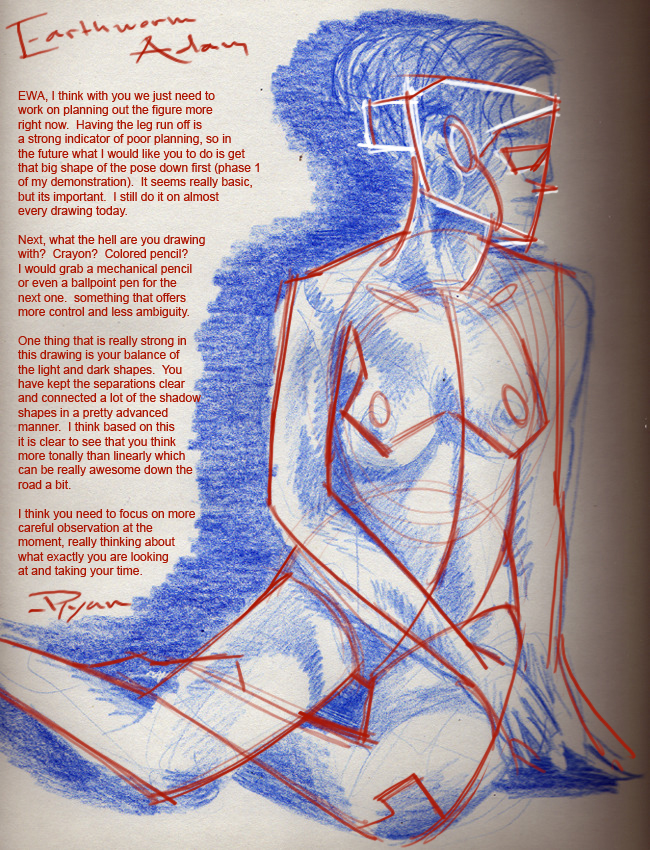 Earthworm
Adam
EWA, I think with you we just need to
work on planning out the figure more
right now.  Having the leg run off is
a strong indicator of poor planning, so in
the future what I would like you to do is get
that big shape of the pose down first (phase 1
of my demonstration).  It seems really basic,
but its important.  I still do it on almost
every drawing today.
Next, what the hell are you drawing
with?  Crayon?  Colored pencil?
I would grab a mechanical pencil
or even a ballpoint pen for the
next one.  something that offers
more control and less ambiguity.
One thing that is really strong in
this drawing is your balance of
the light and dark shapes.  You
have kept the separations clear
and connected a lot of the shadow
shapes in a pretty advanced
manner.  I think based on this
it is clear to see that you think
more tonally than linearly which
can be really awesome down the
road a bit.
I think you need to focus on more
careful observation at the
moment, really thinking about
what exactly you are looking
at and taking your time.
Ryan